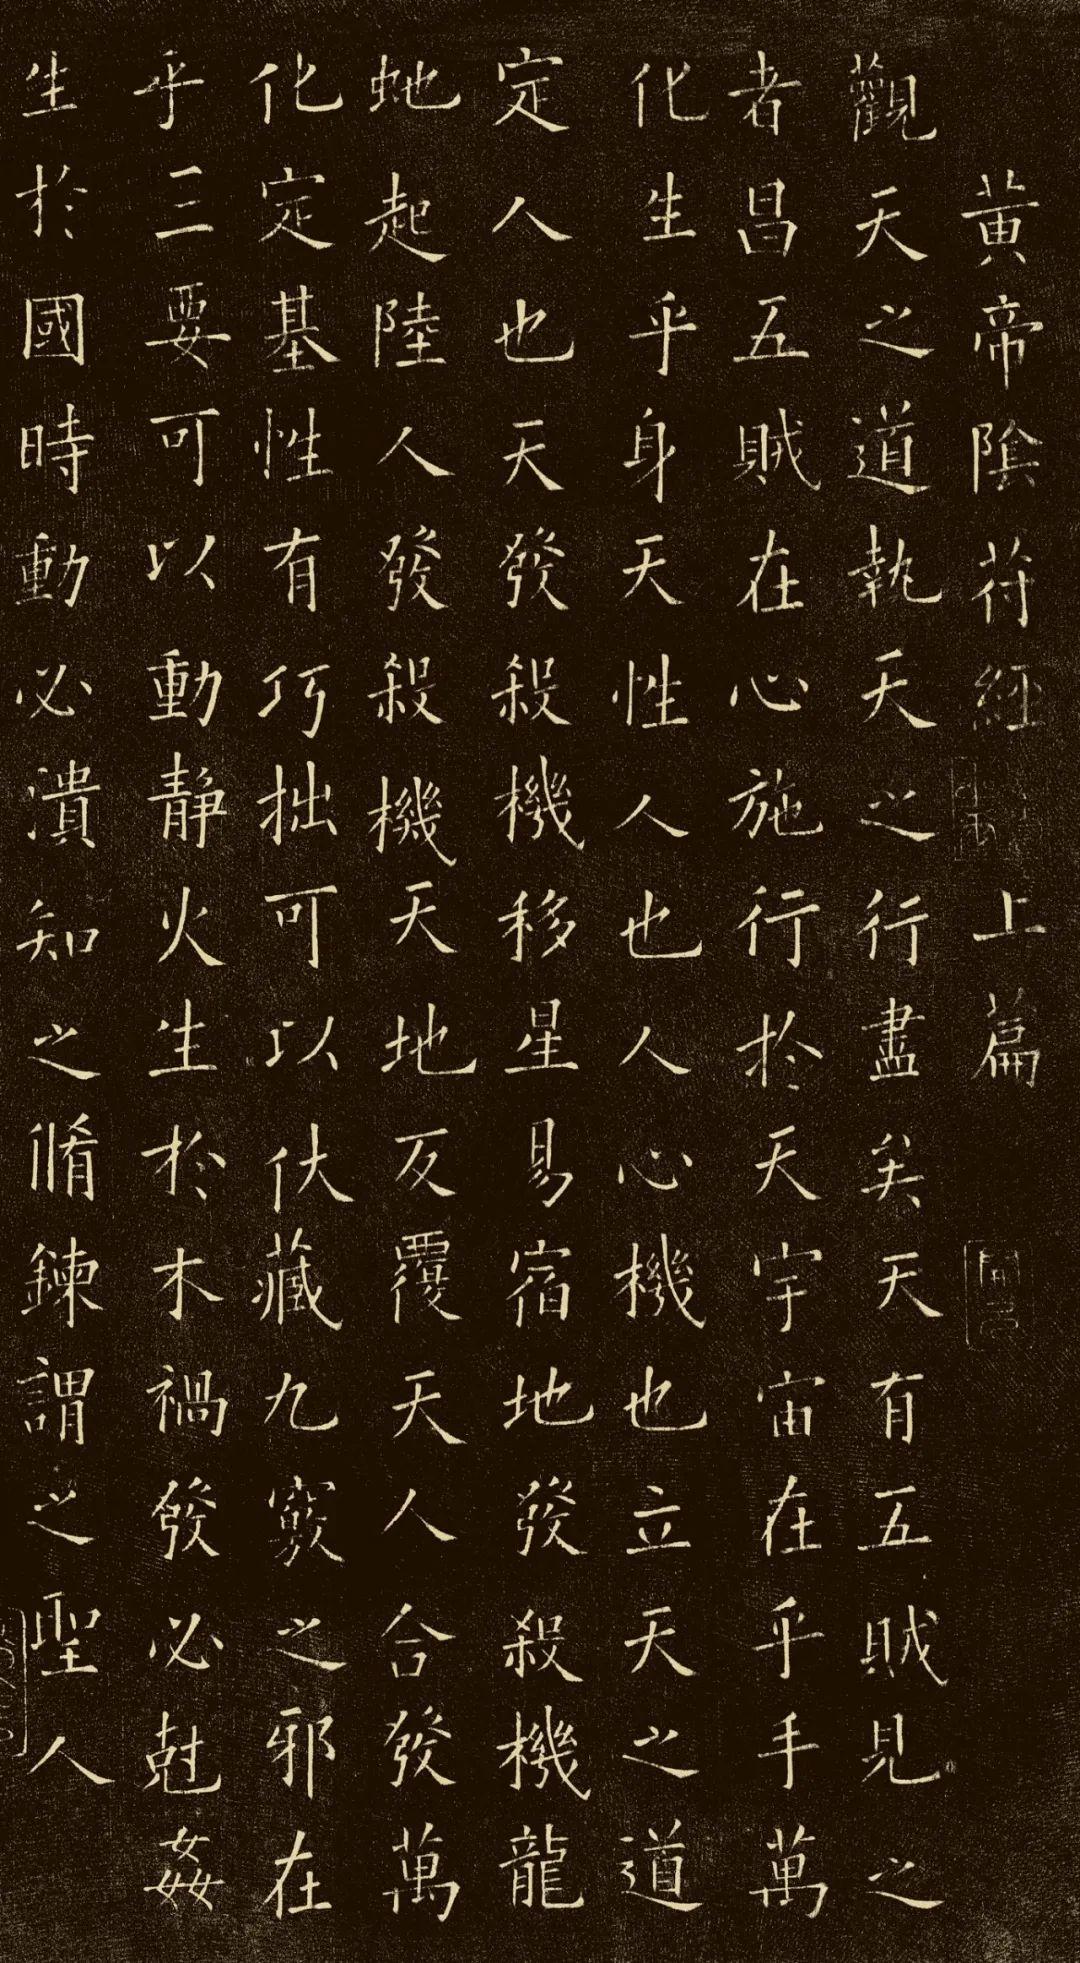 黃帝陰符經上篇
觀天之道執天之行盡矣天有五賊見之
者昌五賊在心施行於天宇宙在乎手萬
化生乎身天性人也人心機也立天之道
定人也天發殺機移星易宿地發殺機龍
虵起陸人發殺機天地反覆天人合發萬
化定基性有巧拙可以伏藏九竅之邪在
乎三要可以動靜火生於木禍發必尅姦
生於國時動必潰知之脩鍊謂之聖人